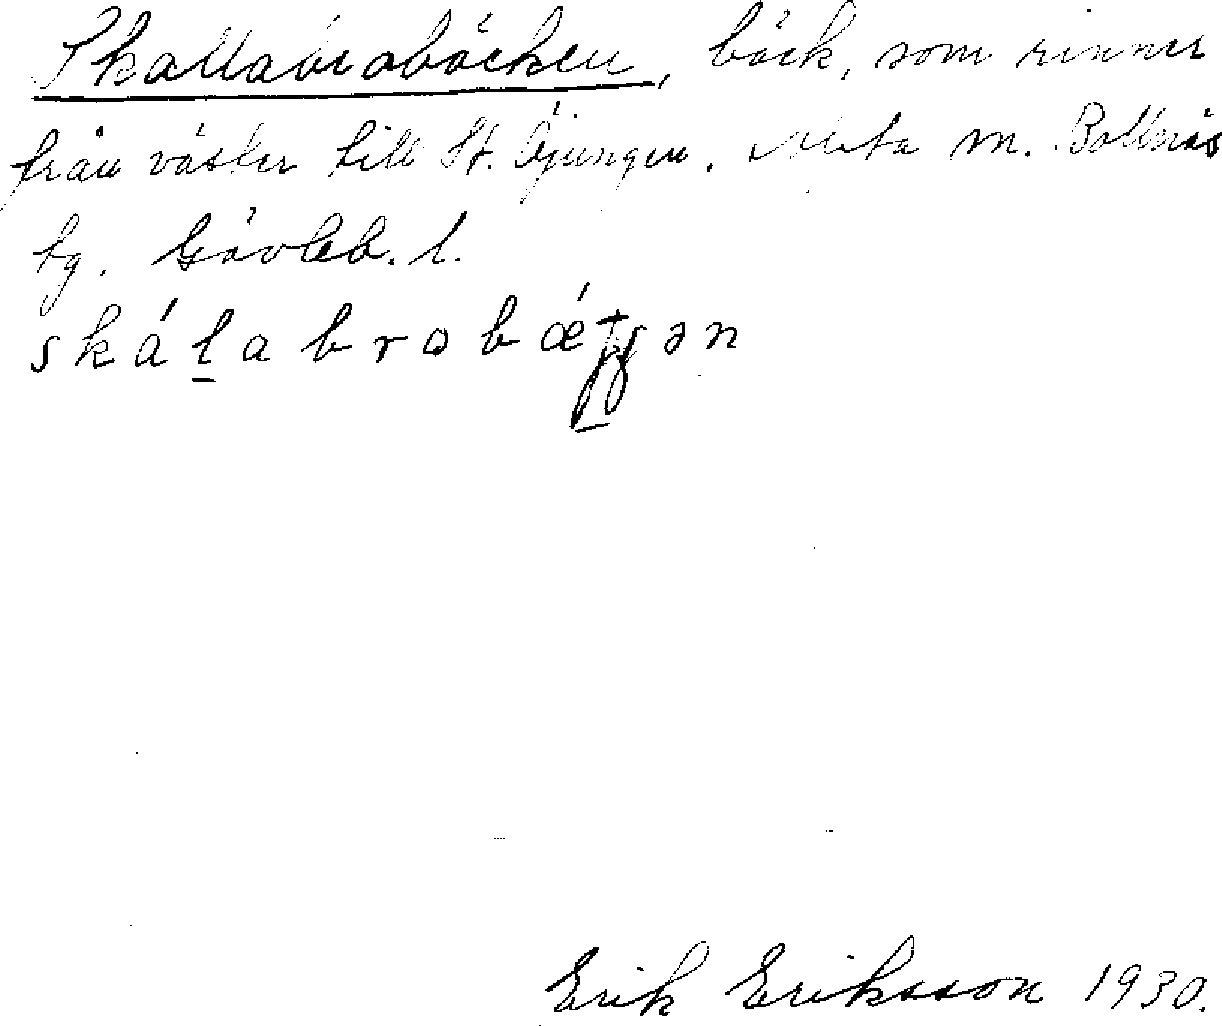 Skallabrobäcken, bäck, som rinner
från väster till St. Öjungen. Alfta m. Bollnäs
tg. Gävleb. l.
skálabrobǽʈʂən
Erik Eriksson 1930.